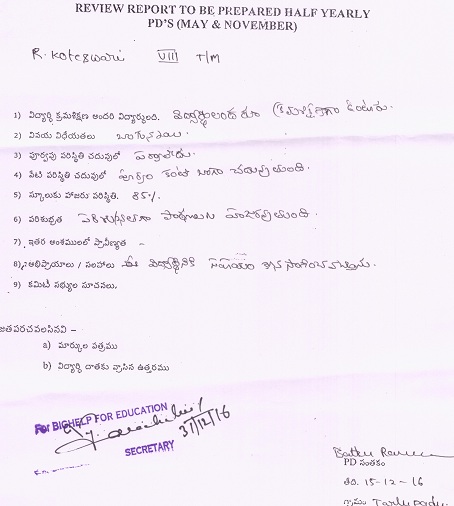 REVIEW REPORT TO BE PREPARED HALF YEARLY
PD'S (MAY & NOVEMBER)
R. Koteswari VIII T/M
1) విద్యార్థి క్రమశిక్షణ అందరి విద్యార్థులది. విద్యార్థులందరూ క్రమశిక్షణగా ఉంటారు.
2) వినయ విధేయతలు బాగున్నాయి.
3) పూర్వపు పరిస్థితి చదువులో పర్వాలేదు.
4) నేటి పరిస్థితి చదువులో పూర్వం కంటే బాగా చదువుతుంది.
5) స్కూలుకు హాజరు పరిస్థితి. 85%
6) పరిశుభ్రత
7) ఇతర అంశములలో ప్రావీణ్యత –
8) అభిప్రాయాలు / సలహాలు ఈ విద్యార్థినికి సహాయం
9) కమిటీ సభ్యుల సూచనలు.
జతపరచవలసినవి –
a) మార్కుల పత్రము
b) విద్యార్థి దాతకు వ్రాసిన ఉత్తరము
For BIGHELP FOR EDUCATION
31/12/16
SECRETARY
PD సంతకం
తేది. 15-12-16
గ్రామం